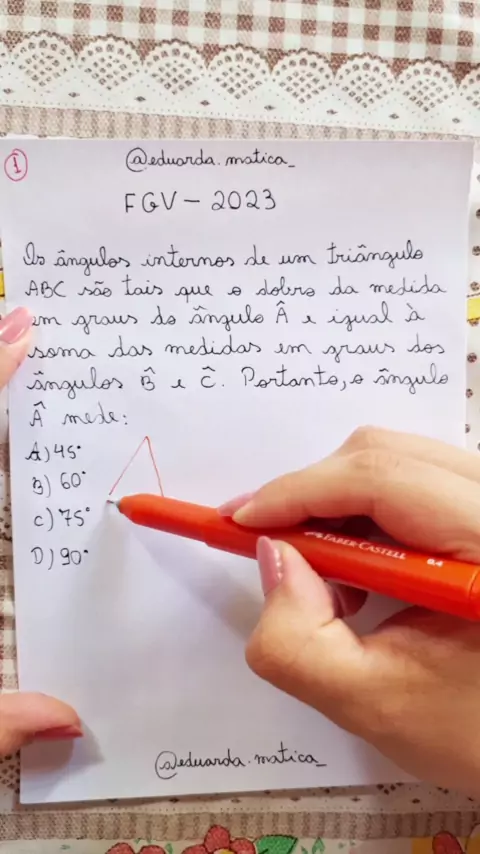 1
@eduarda.matica_
FGV - 2023
Os ângulos internos de um triângulo
ABC são tais que o dobro da medida
em graus do ângulo Â e igual à
soma das medidas em graus dos
ângulos B̂ e Ĉ. Portanto, o ângulo
Â mede:
A) 45°
B) 60°
C) 75°
D) 90°
FABER-CASTELL 0.4
@eduarda.matica_